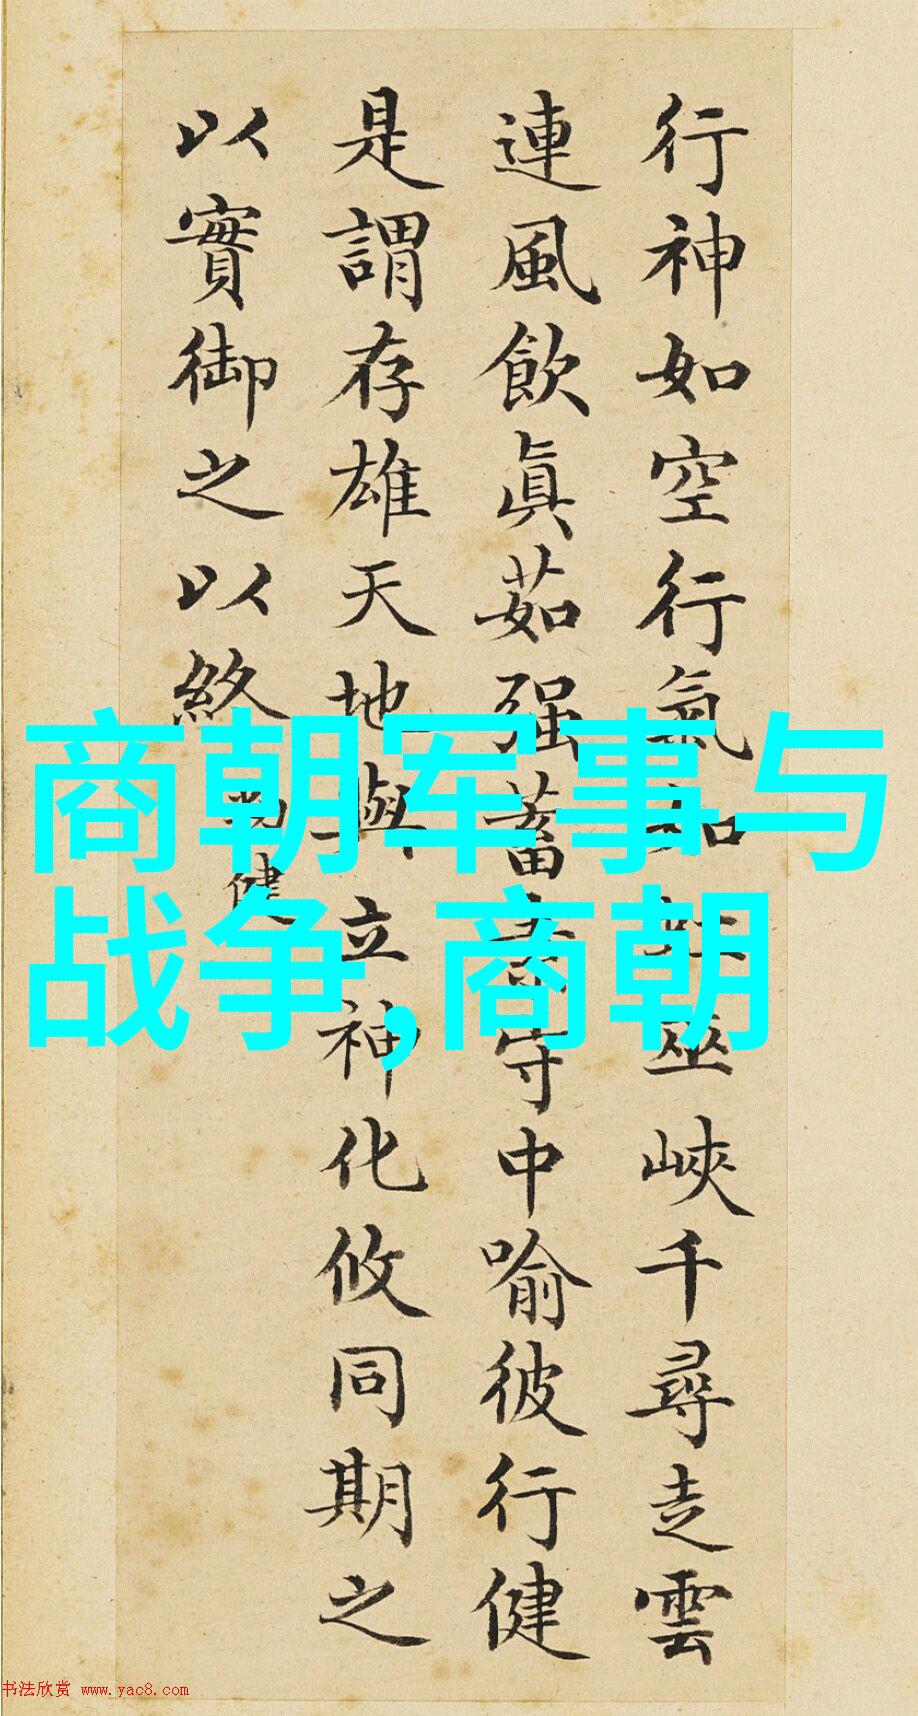 行神如空行氣如虹巫峽千尋走雲
連風飲眞茹强蓄素守中喻彼行健
是謂存雄天地與立神化攸同期之
以實御之以終
勁健
商朝军事与
战争,商朝
书法欣赏 www.yac8.com